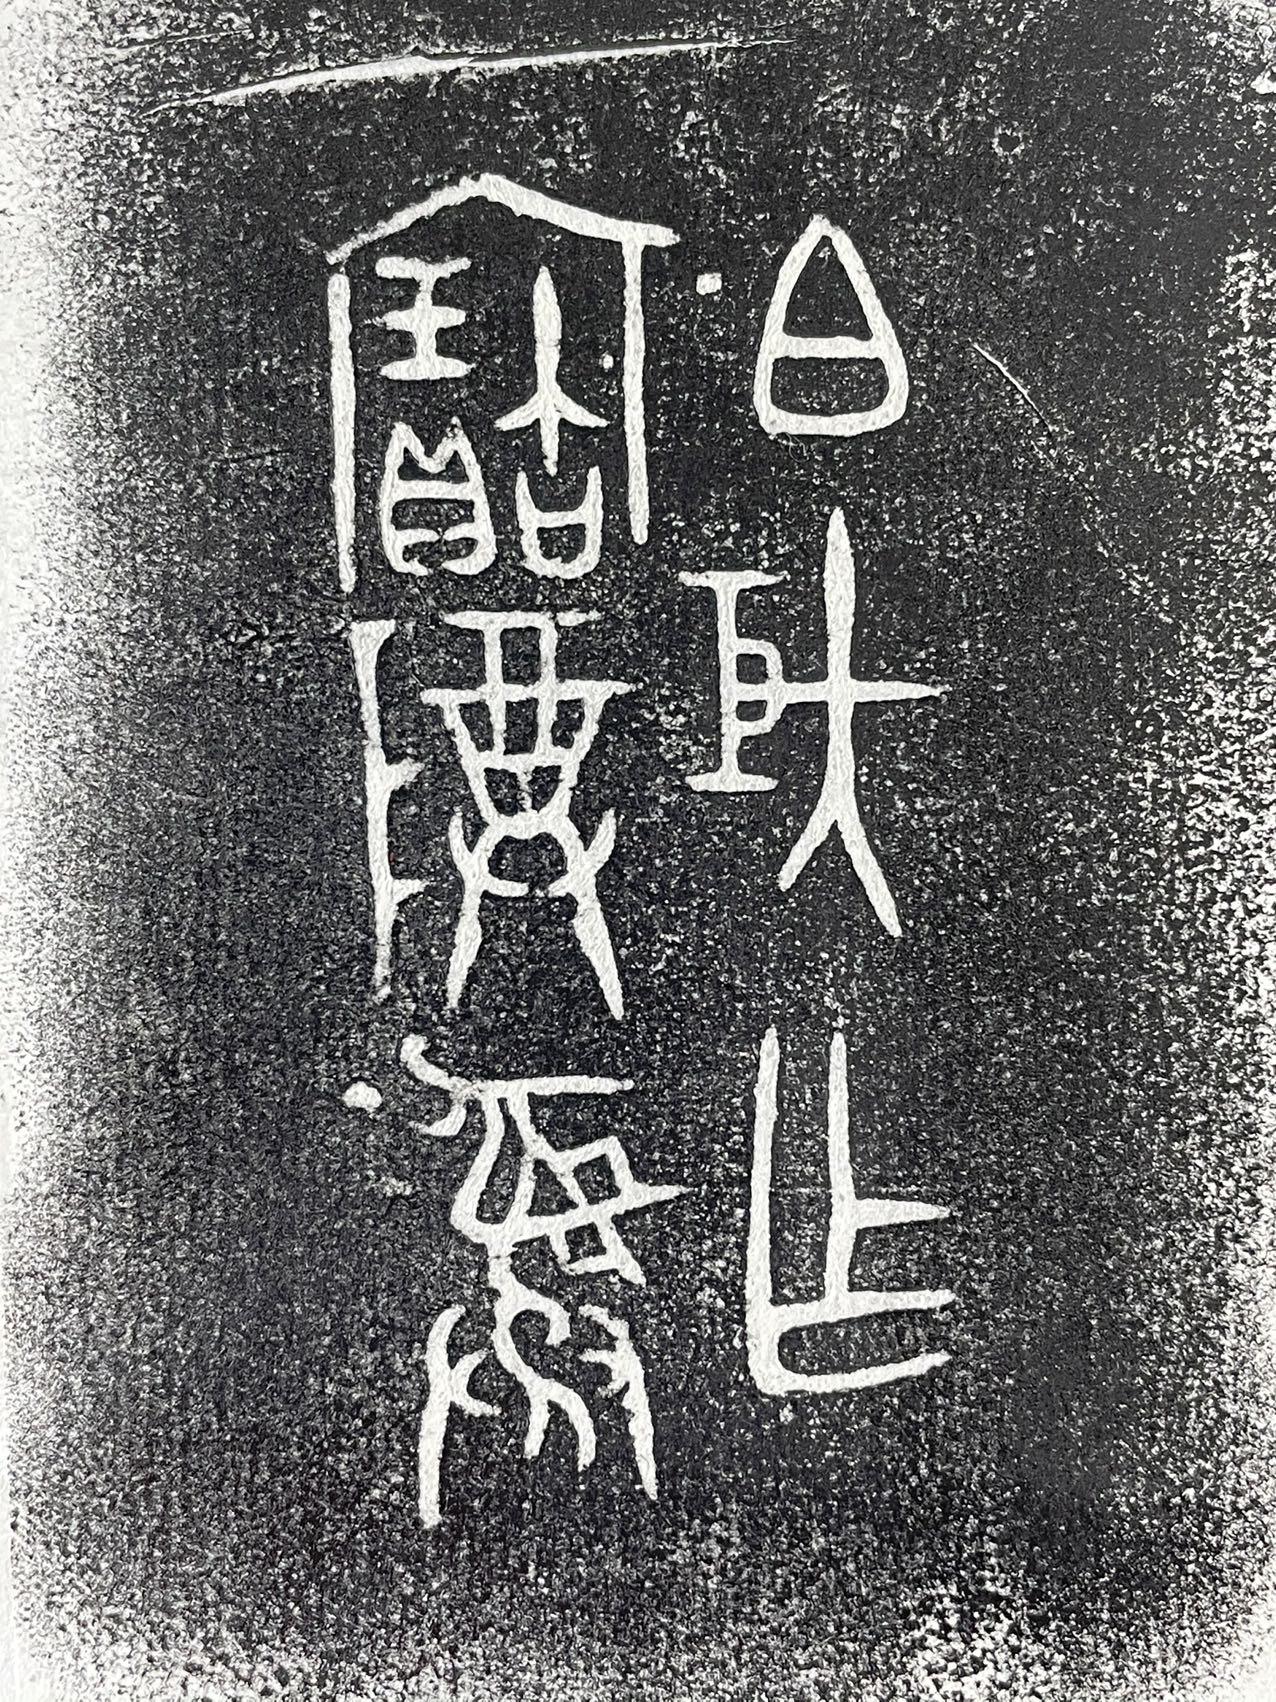 白矩乍
寶尊彝